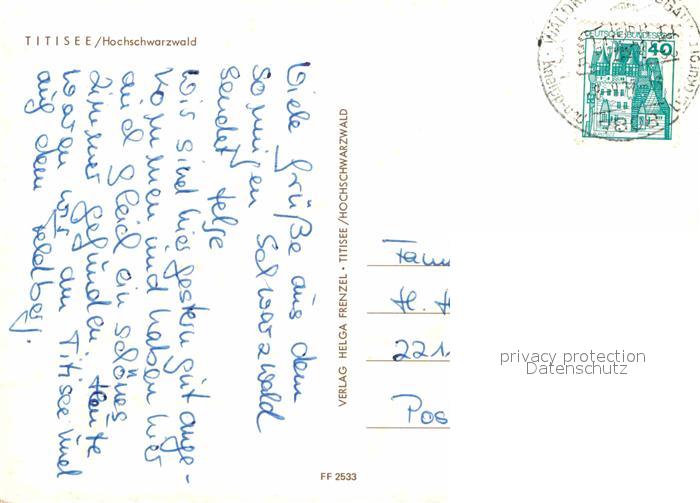 TITISEE/Hochschwarzwald
Viele Grüße aus dem
sonnigen Schwarzwald
sendet
Wir sind hier gestern gut ange-
kommen und haben hier
auch gleich ein schönes
Zimmer gefunden. Heute
waren wir am Titisee und
auf dem Feldberg.
VERLAG HELGA FRENZEL • TITISEE/HOCHSCHWARZWALD
FF 2533
DEUTSCHE BUNDESPOST
40
Fam
H. H
221
Pos
privacy protection
Datenschutz